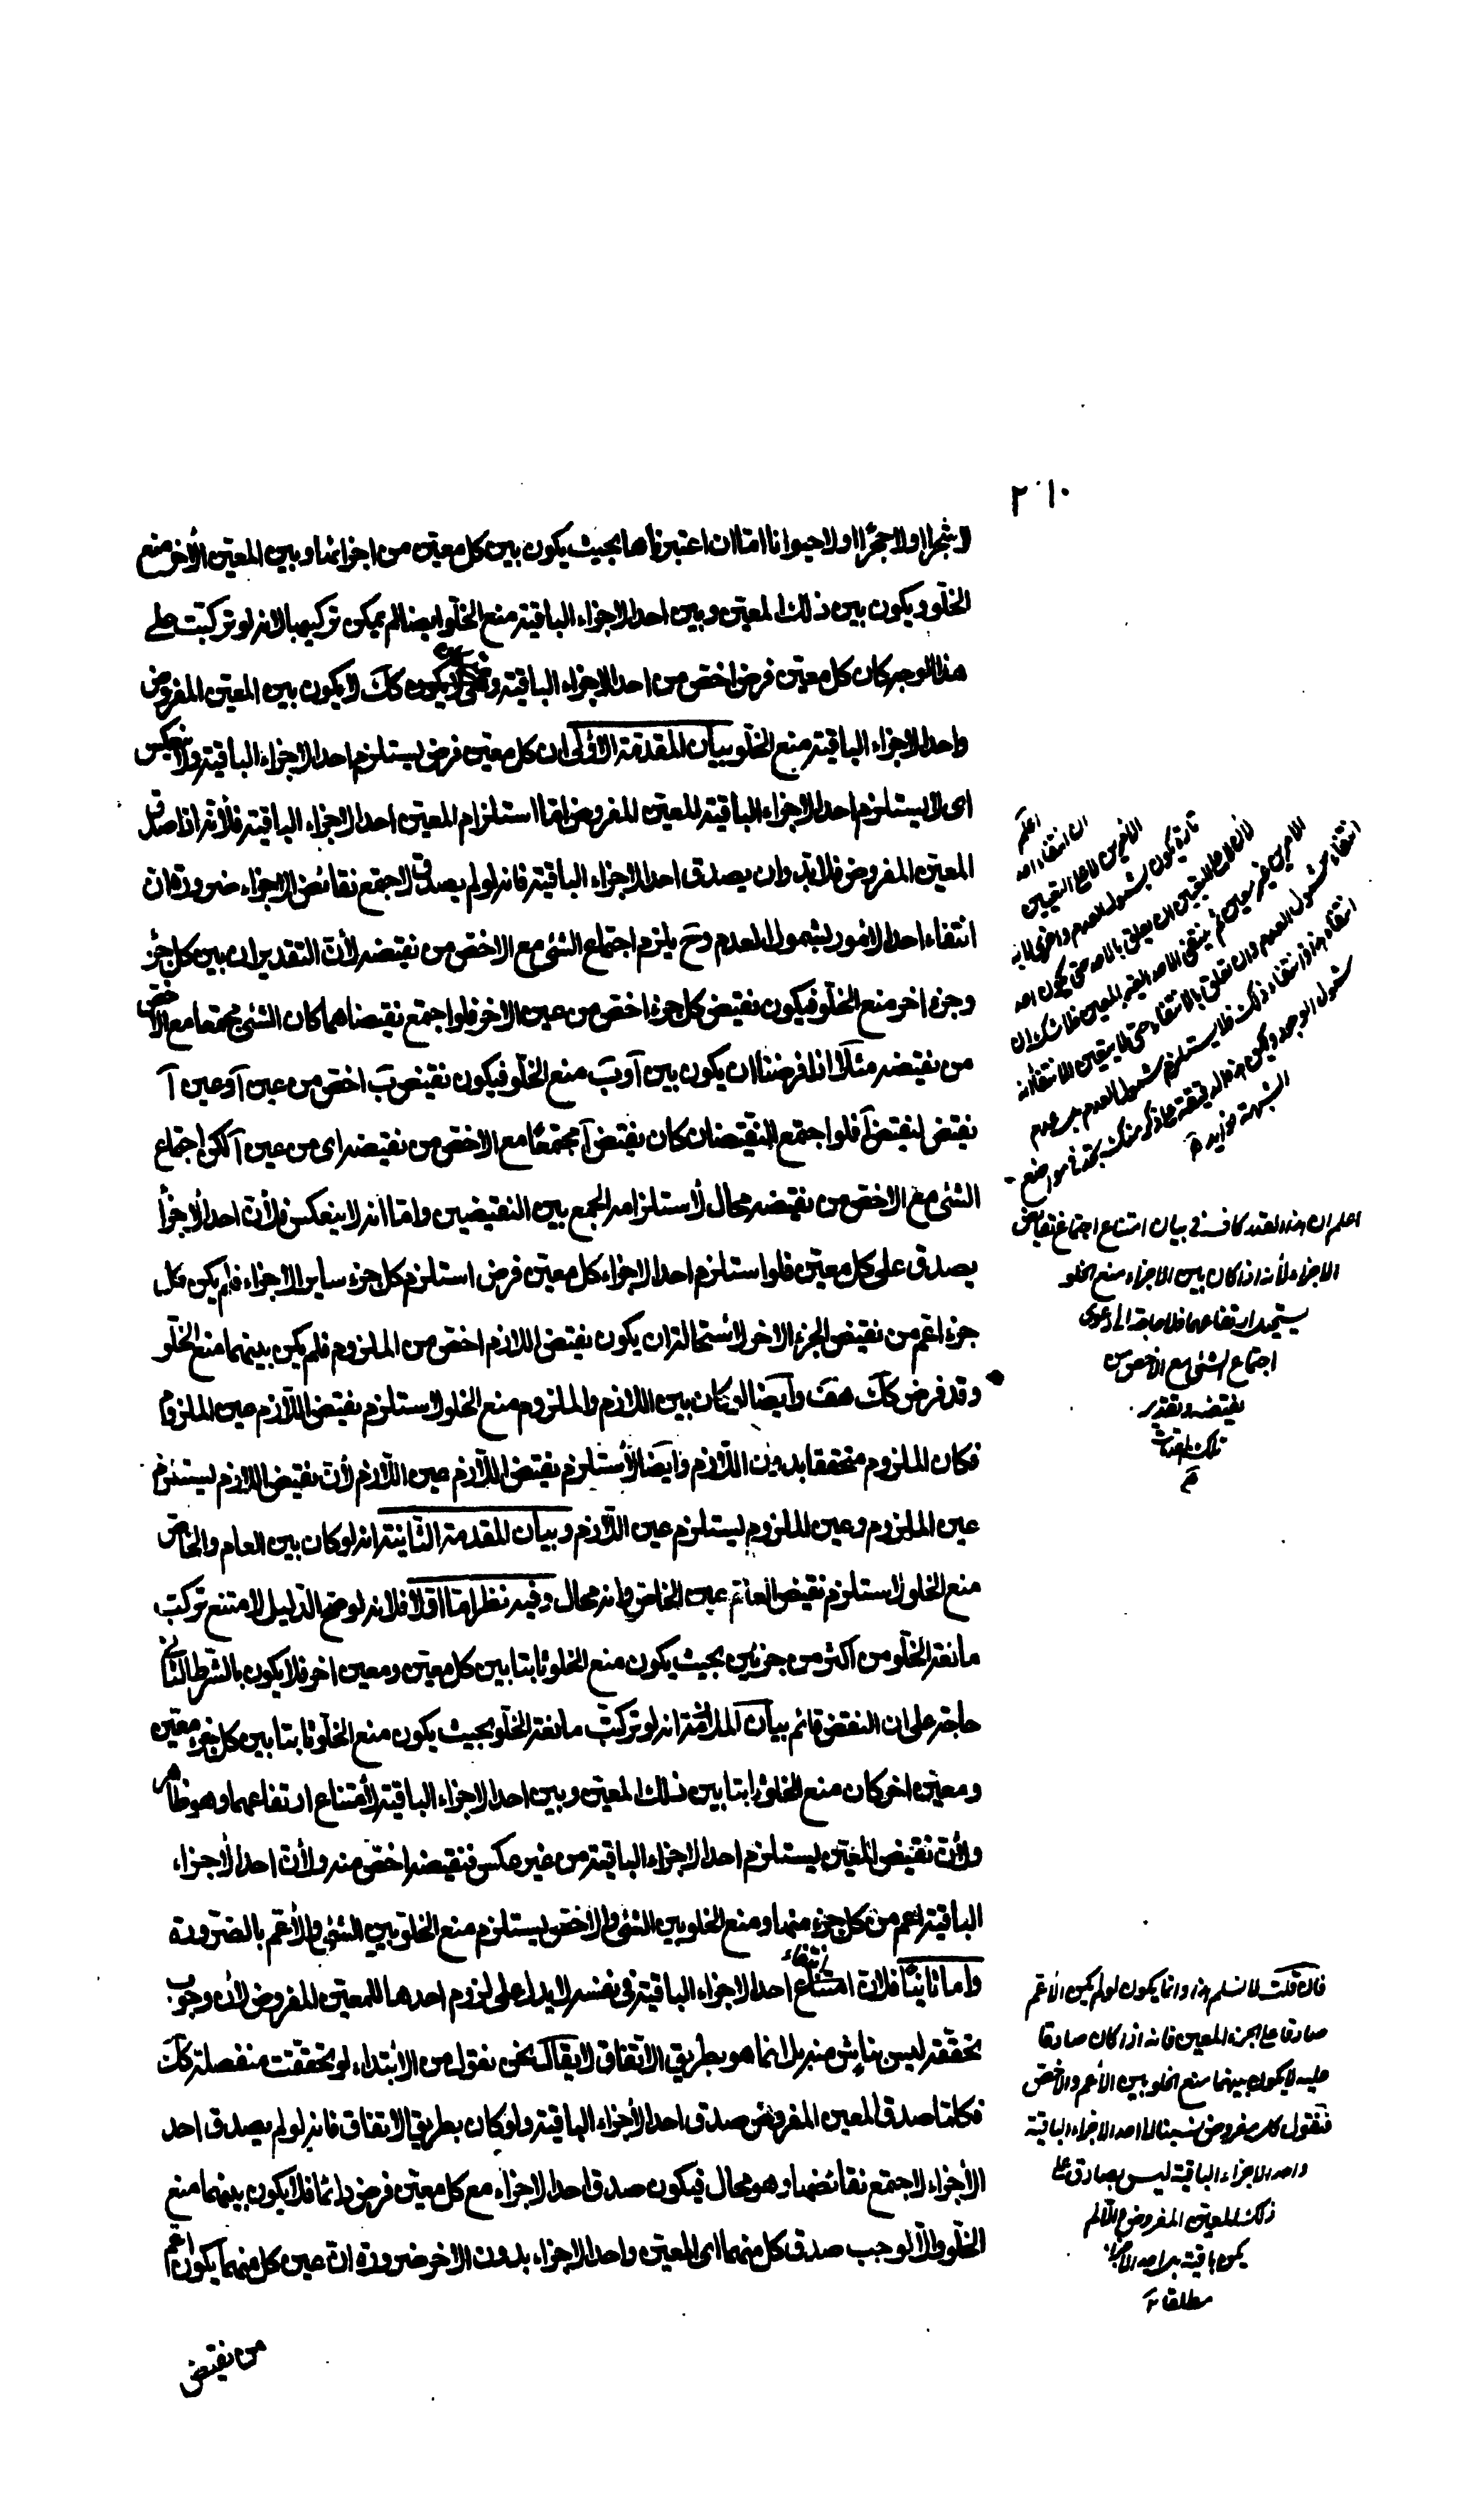 ٢١٠
لا شجرا او لا حجرا او لا حيوانا اما ان اعتبرناها بحيث يكون بين كل معين من اجزائها وبين المعين الآخر منع
الخلو ويكون بين ذلك المعين وبين احد الاجزاء الباقية منع الخلو ايضا لم يمكن تركيبها لانه لو تركبت على
هذا الوجه كان كل معين فرض اخص من احد الاجزاء الباقية و كك لا يكون بين المعين المفروض
واحد الاجزاء الباقية منع الخلو بيان المقدمة الاولى ان كل معين فرض يستلزم احد الاجزاء الباقية ولا ينعكس
اى لا يستلزم احد الاجزاء الباقية للمعين المفروض اما استلزام المعين احد الاجزاء الباقية فلأنه اذا صدق
المعين المفروض فلابد وان يصدق احد الاجزاء الباقية فانه لو لم يصدق لاجتمع نقائض الاجزاء ضرورة ان
انتفاء احد الامور لشمول العدم وح يلزم اجتماع الشئ مع الاخص من نقيضه لأن التقدير ان بين كل جزء
وجزء اخر منع الخلو فيكون نقيض كل جزء اخص من عين الاخر فلو اجتمع نقيضاهما كان الشئ مجتمعا مع الاخص
من نقيضه مثلا اذا فرضنا ان يكون بين آ وب منع الخلو فيكون نقيض ب اخص من عين آ وعين آ
نقيض لنقيض آ فلو اجتمع النقيضان كان نقيض آ مجتمعا مع الاخص من نقيضه اى من عين آ لكن اجتماع
الشئ مع الاخص من نقيضه محال لأستلزامه الجمع بين النقيضين واما انه لا ينعكس فلأن احد الأجزأ
يصدق على كل معين فلو استلزم احد الاجزاء كل معين فرض استلزم كل جزء ساير الاجزاء فلم يكن كل
جزء اعم من نقيض الجزء الاخر لاستحالة ان يكون نقيض اللازم اخص من الملزوم فلم يكن بينهما منع الخلو
وقد فرض كك هف وايضا لو كان بين اللازم والملزوم منع الخلو لاستلزم نقيض اللازم عين الملزوم
فكان الملزوم متحققا بدون اللازم وايضا لأستلزم نقيض اللازم عين اللازم لأن نقيض اللازم يستلزم
عين الملزوم وعين الملزوم يستلزم عين اللازم وبيان المقدمة الثانية انه لو كان بين العام والخاص
منع الخلو لاستلزم نقيض العام عين الخاص وانه محال وفيه نظر اما اولا فلانه لو صح الدليل لامتنع تركب
مانعة الخلو من اكثر من جزئين بحيث يكون منع الخلو ثابتا بين كل معين ومعين اخر فلا يكون بالشرط الثانى
حاجة على ان النقض قائم بيان الملازمة انه لو تركبت مانعة الخلو بحيث يكون منع الخلو ثابتا بين كل جزء معين
ومعين اخر كان منع الخلو ثابتا بين ذلك المعين وبين احد الاجزاء الباقية لأمتناع ارتفاعهما وهو ظاهر
ولأن نقيض المعين يستلزم احد الاجزاء الباقية من غير عكس فنقيضه اخص منه ولأن احد الأجزاء
الباقية اعم من كل جزء منها ومنع الخلو بين الشئ والاخص يستلزم منع الخلو بين الشئ والأعم بالضرورة
واما ثانيا فلان امتناع انتفاء احد الاجزاء الباقية فى نفسه لا يدل على لزوم احدها للمعين المفروض لأن وجوب
تحققه ليس بناش منه بل انما هو بطريق الاتفاق لا يقال نحن نقول من الأبتداء لو تحققت منفصلة كك
فكلما صدق المعين المفروض صدق احد الأجزاء الباقية ولو كان بطريق الأتفاق فانه لو لم يصدق احد
الأجزاء لاجتمع نقائضها وهو محال فيكون صدق احد الاجزاء مع كل معين فرض دائما فلا يكون بينهما منع
الخلو والا لوجب صدق كل منهما اى المعين واحد الاجزاء بدون الاخر ضرورة ان عين كل منهما يكون اعم
من نقيض
اعلم
ان انتفاء احد
الامرين
تارة يكون بشمول العدم
اعلم ان هذا القدر كاف فى بيان امتناع اجتماع نقايض
الاجزاء لأنه اذا كان بين الاجزاء منع الخلو
يستحيل ارتفاعهما فلا حاجة الى دعوى
اجتماع الشئ مع الأخص من
نقيضه وتقدير
تلك المقدمات
فان قلت لا نسلم هذا وانما يكون لو لم يكن الأعم
صادقا على الجزء المعين فانه اذا كان صادقا
عليه لا يكون بينهما منع الخلو بين الأعم والأخص
فنقول كل مفروض نسبناه الى احد الاجزاء الباقية
واحد الاجزاء الباقية ليس بصادق على
ذلك المعين المفروض والا لم
يكن باقية بل احد الأجزاء
مطلقا